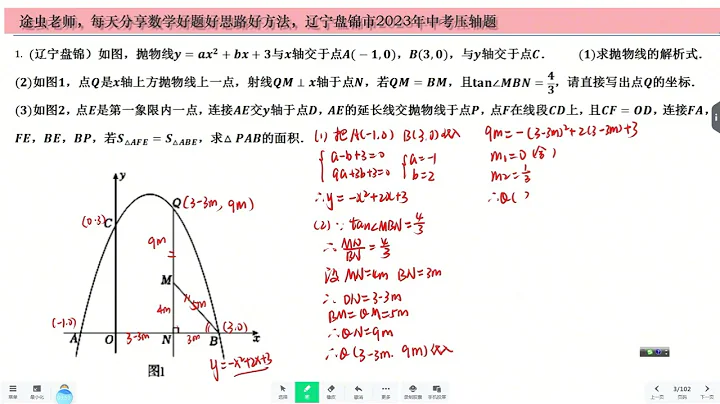 途虫老师，每天分享数学好题好思路好方法，辽宁盘锦市2023年中考压轴题
1. (辽宁盘锦) 如图，抛物线y=ax²+bx+3与x轴交于点A(-1,0)，B(3,0)，与y轴交于点C. (1)求抛物线的解析式.
(2)如图1，点Q是x轴上方抛物线上一点，射线QM⊥x轴于点N，若QM=BM，且tan∠MBN=4/3，请直接写出点Q的坐标.
(3)如图2，点E是第一象限内一点，连接AE交y轴于点D，AE的延长线交抛物线于点P，点F在线段CD上，且CF=OD，连接FA，
FE，BE，BP，若S△AFE=S△ABE，求△PAB的面积.
(1) 把A(-1.0) B(3.0)代入
{a-b+3=0 {a=-1
9a+3b+3=0 b=2
∴y=-x²+2x+3
(2) ∵tan∠MBN=4/3
∴MN/BN=4/3
设 MN=4m BN=3m
∴ON=3-3m
BM=QM=5m
∴QN=9m
∴Q(3-3m. 9m)代入
9m=-(3-3m)²+2(3-3m)+3
m₁=0(舍)
m₂=1/3
∴Q(
y
Q(3-3m, 9m)
(0.3)
C
9m
M
4m
5m
(-1.0)
(3.0)
A
O
3-3m
N
3m
B
x
y=-x²+2x+3
图1
3/102
菜单
最小化
选择
笔
橡皮
撤销
更多
录制胶囊
手机投屏
上一页
页码
下一页